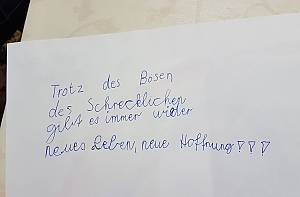 Trotz des Bösen
des Schrecklichen
gibt es immer wieder
neues Leben, neue Hoffnung!!!